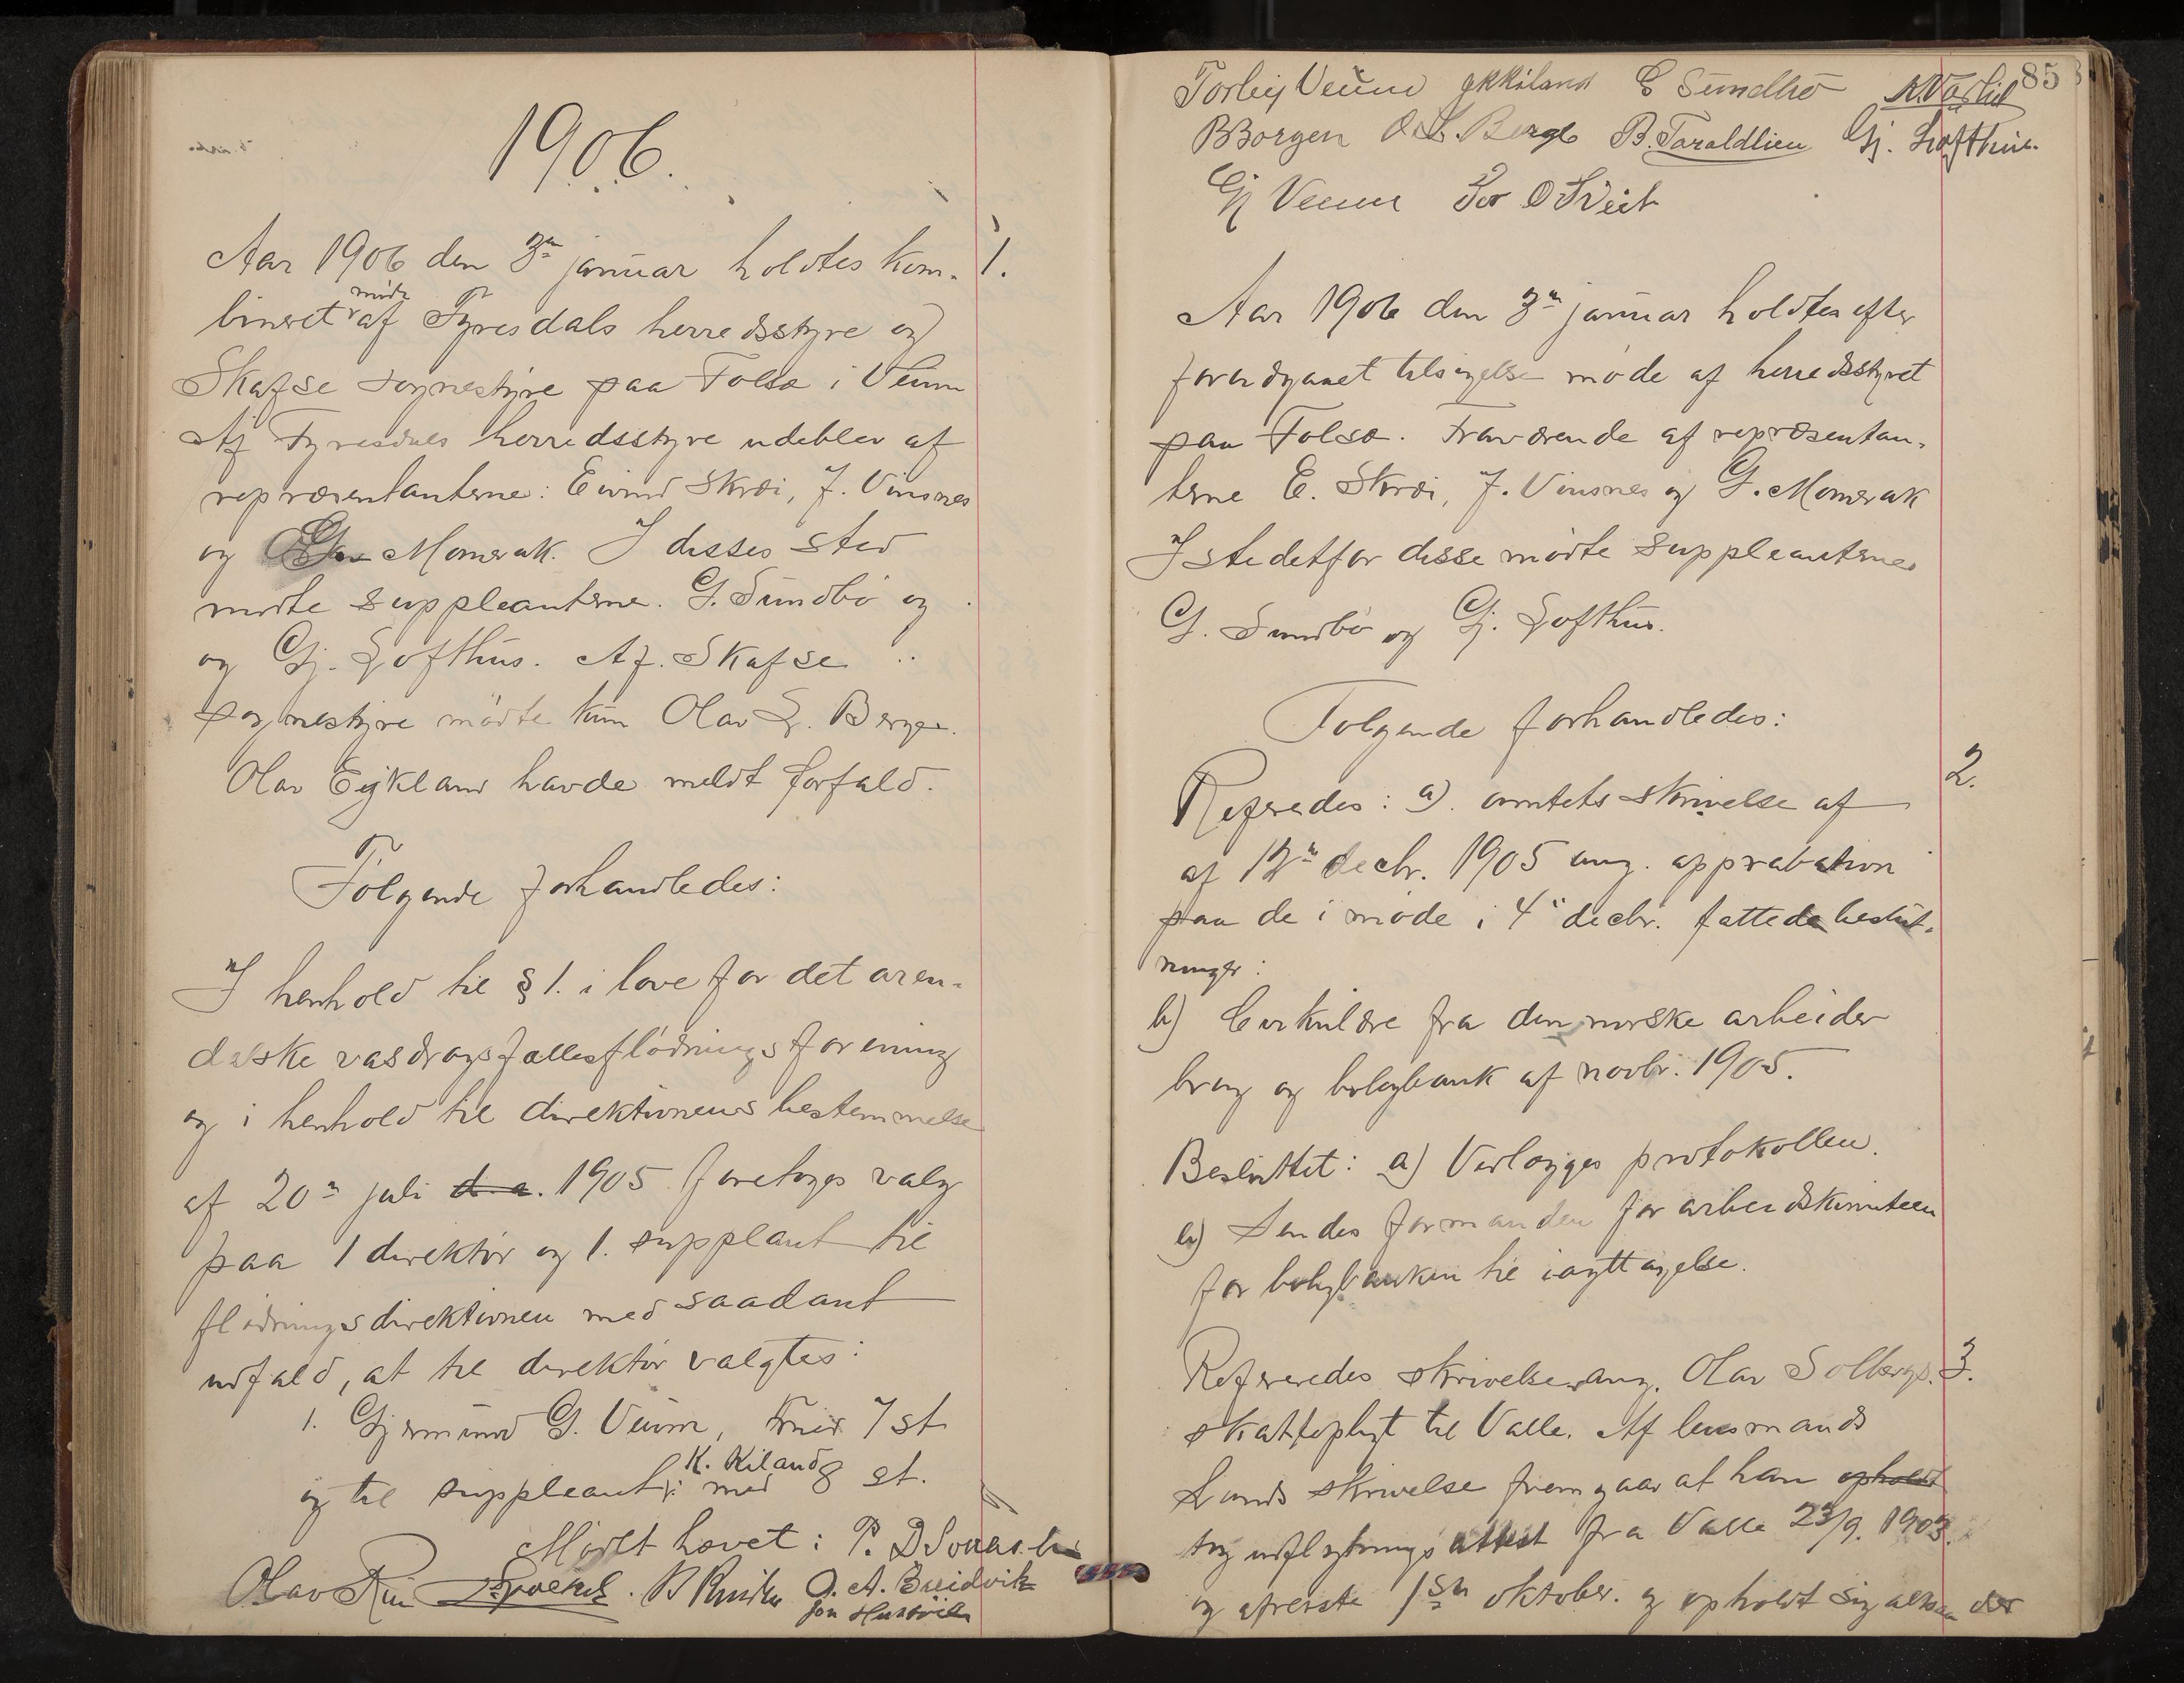 1906.
Aar 1906 den 3n januar holdtes kom- 1.
bineret møde af Tyresdals herredsstyre og
Skafse sognestyre paa Folsæ i Veum
Af Tyresdals herredsstyre udeblev af
repræsentanterne: Eivind Skræi, J. Vinsnes
og Momrak. I disses sted
mødte suppleanterne. G. Sundbø og
og Gj. Lofthus. Af Skafse
sognestyre mødte kun Olav L. Berge.
Olav Eikland havde meldt forfald.
Følgende forhandledes:
I henhold til § 1. i love for det aren-
dalske vasdrags fællesflødningsforening
og i henhold til direktionens bestemmelse
af 20n juli d. a. 1905 foretoges valg
paa 1 direktør og 1. suppleant til
flødningsdirektionen med saadant
udfald, at til direktør valgtes:
1. Gjermund G. Veum, 7 st
og til suppleant: K. Kiland med 8 st.
Mødet hævet: P. D.
Olav O. A. Breidvik
Jon
85
Torleif Veum G Sundbø
B Borgen O. L. Berge B. Taraldlien Gj. Lofthus.
Gj Veum Tor O Tveit
Aar 1906 den 3n januar holdtes efter
forudgaaet tilsigelse møde af herredsstyret
paa Folsæ. Fraværende af repræsentan-
terne E. Skræi, J. Vinsnes og G. Momrak
I stedetfor disse mødte suppleanterne
G. Sundbø og Gj. Lofthus.
Følgende forhandledes:
2.
Refereredes: a). amtets skrivelse af
af 12n decbr. 1905 ang. approbation
paa de i møde i 4de decbr. fattede beslut-
ninger:
b) Cirkulære fra den norske arbeider
brug og boligbank af novbr. 1905.
Besluttet: a) Vedlægges protokollen.
b) Sendes formanden for arbeidskomiteen
for boligbanken til iagttagelse.
Refereredes skrivelse ang. Olav Solbergs 3.
skattepligt til Valle. Af lensmands
Lunds skrivelse fremgaar at han opholdt
tog udflytningsattest fra Valle 23/9. 1903.
og afreiste 1ste oktober. og opholdt sig altsaa der